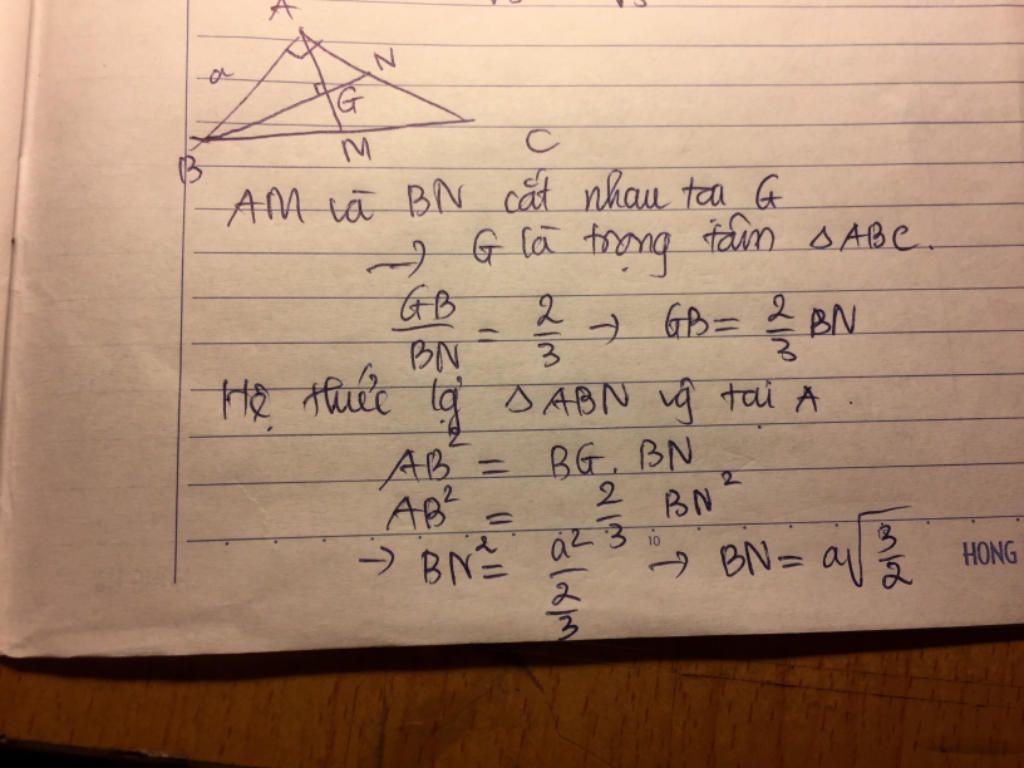 A
a
N
G
B
M
C
AM và BN cắt nhau tại G
→ G là trọng tâm △ABC.
GB/BN = 2/3 → GB = 2/3 BN
Hệ thức lg △ABN vg tại A.
AB² = BG. BN
AB² = 2/3 BN²
→ BN² = a²/(2/3) → BN = a√(3/2)
10
HONG